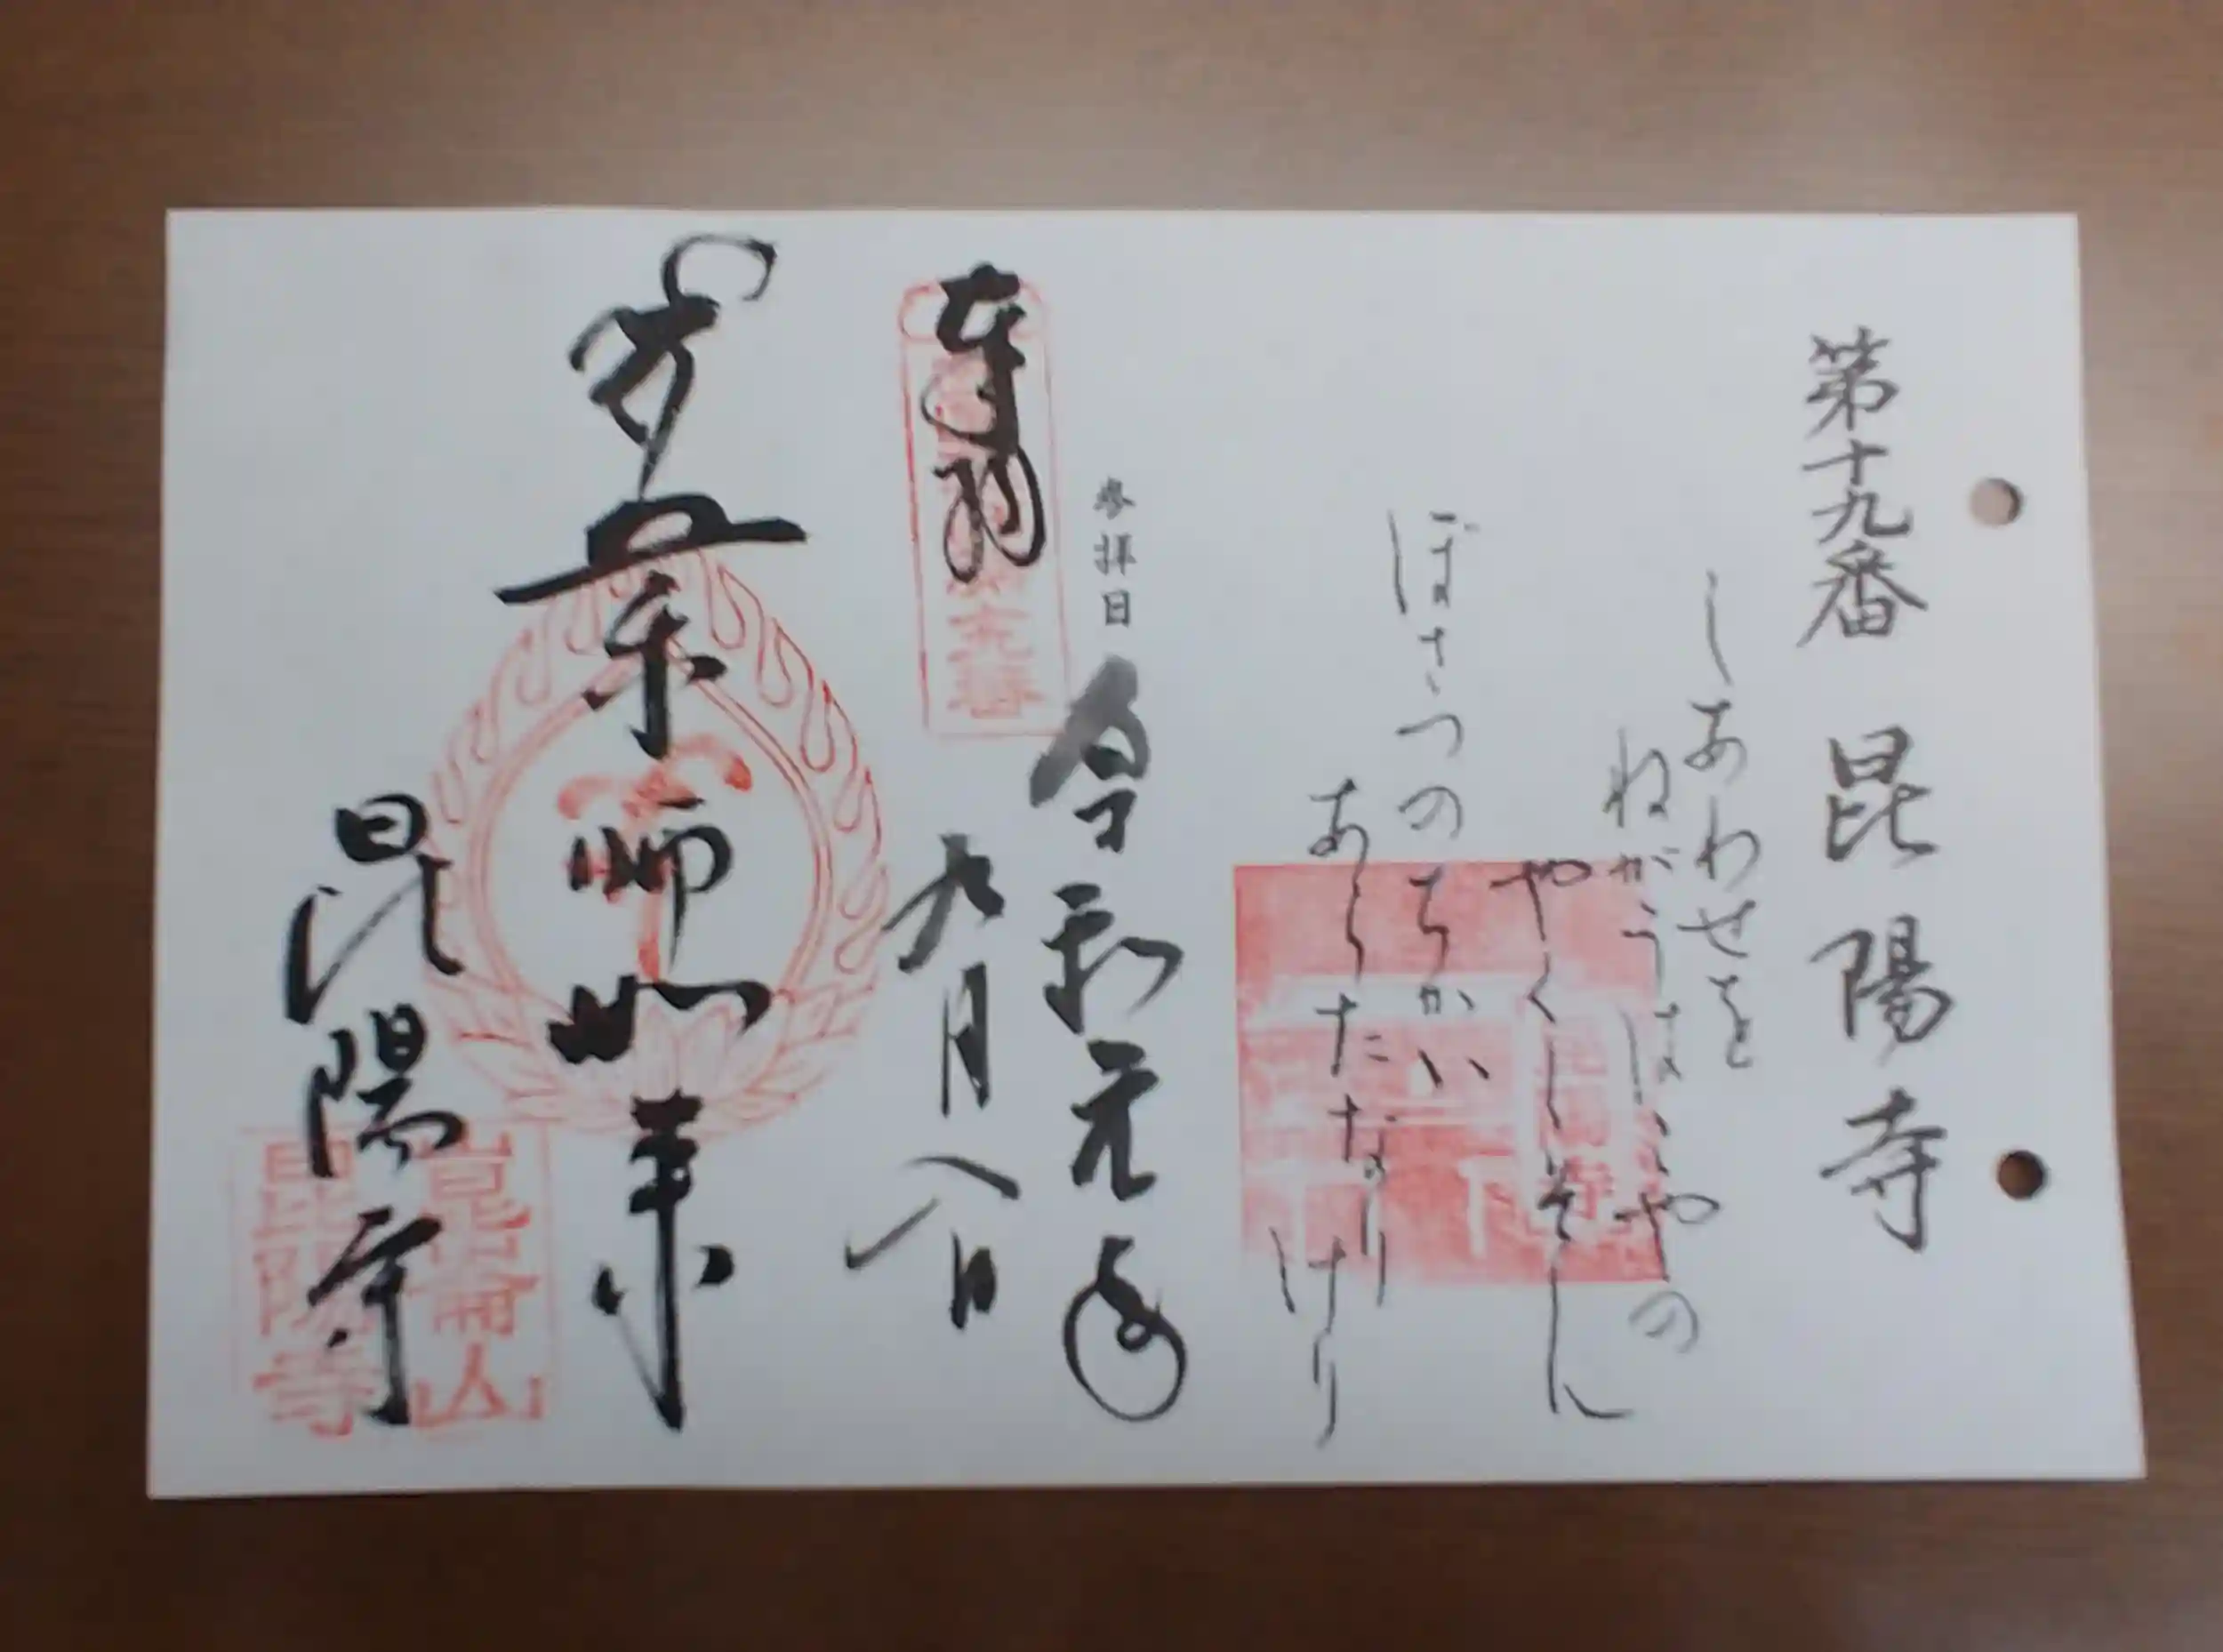 第十九番 昆陽寺
しあわせを
ねがうはこやの
やくしそん
ぼさつのちかい
あらたなりけり
参拝日 令和元年
九月八日
奉拝
薬師如来
昆陽寺
崑崙山
昆陽寺